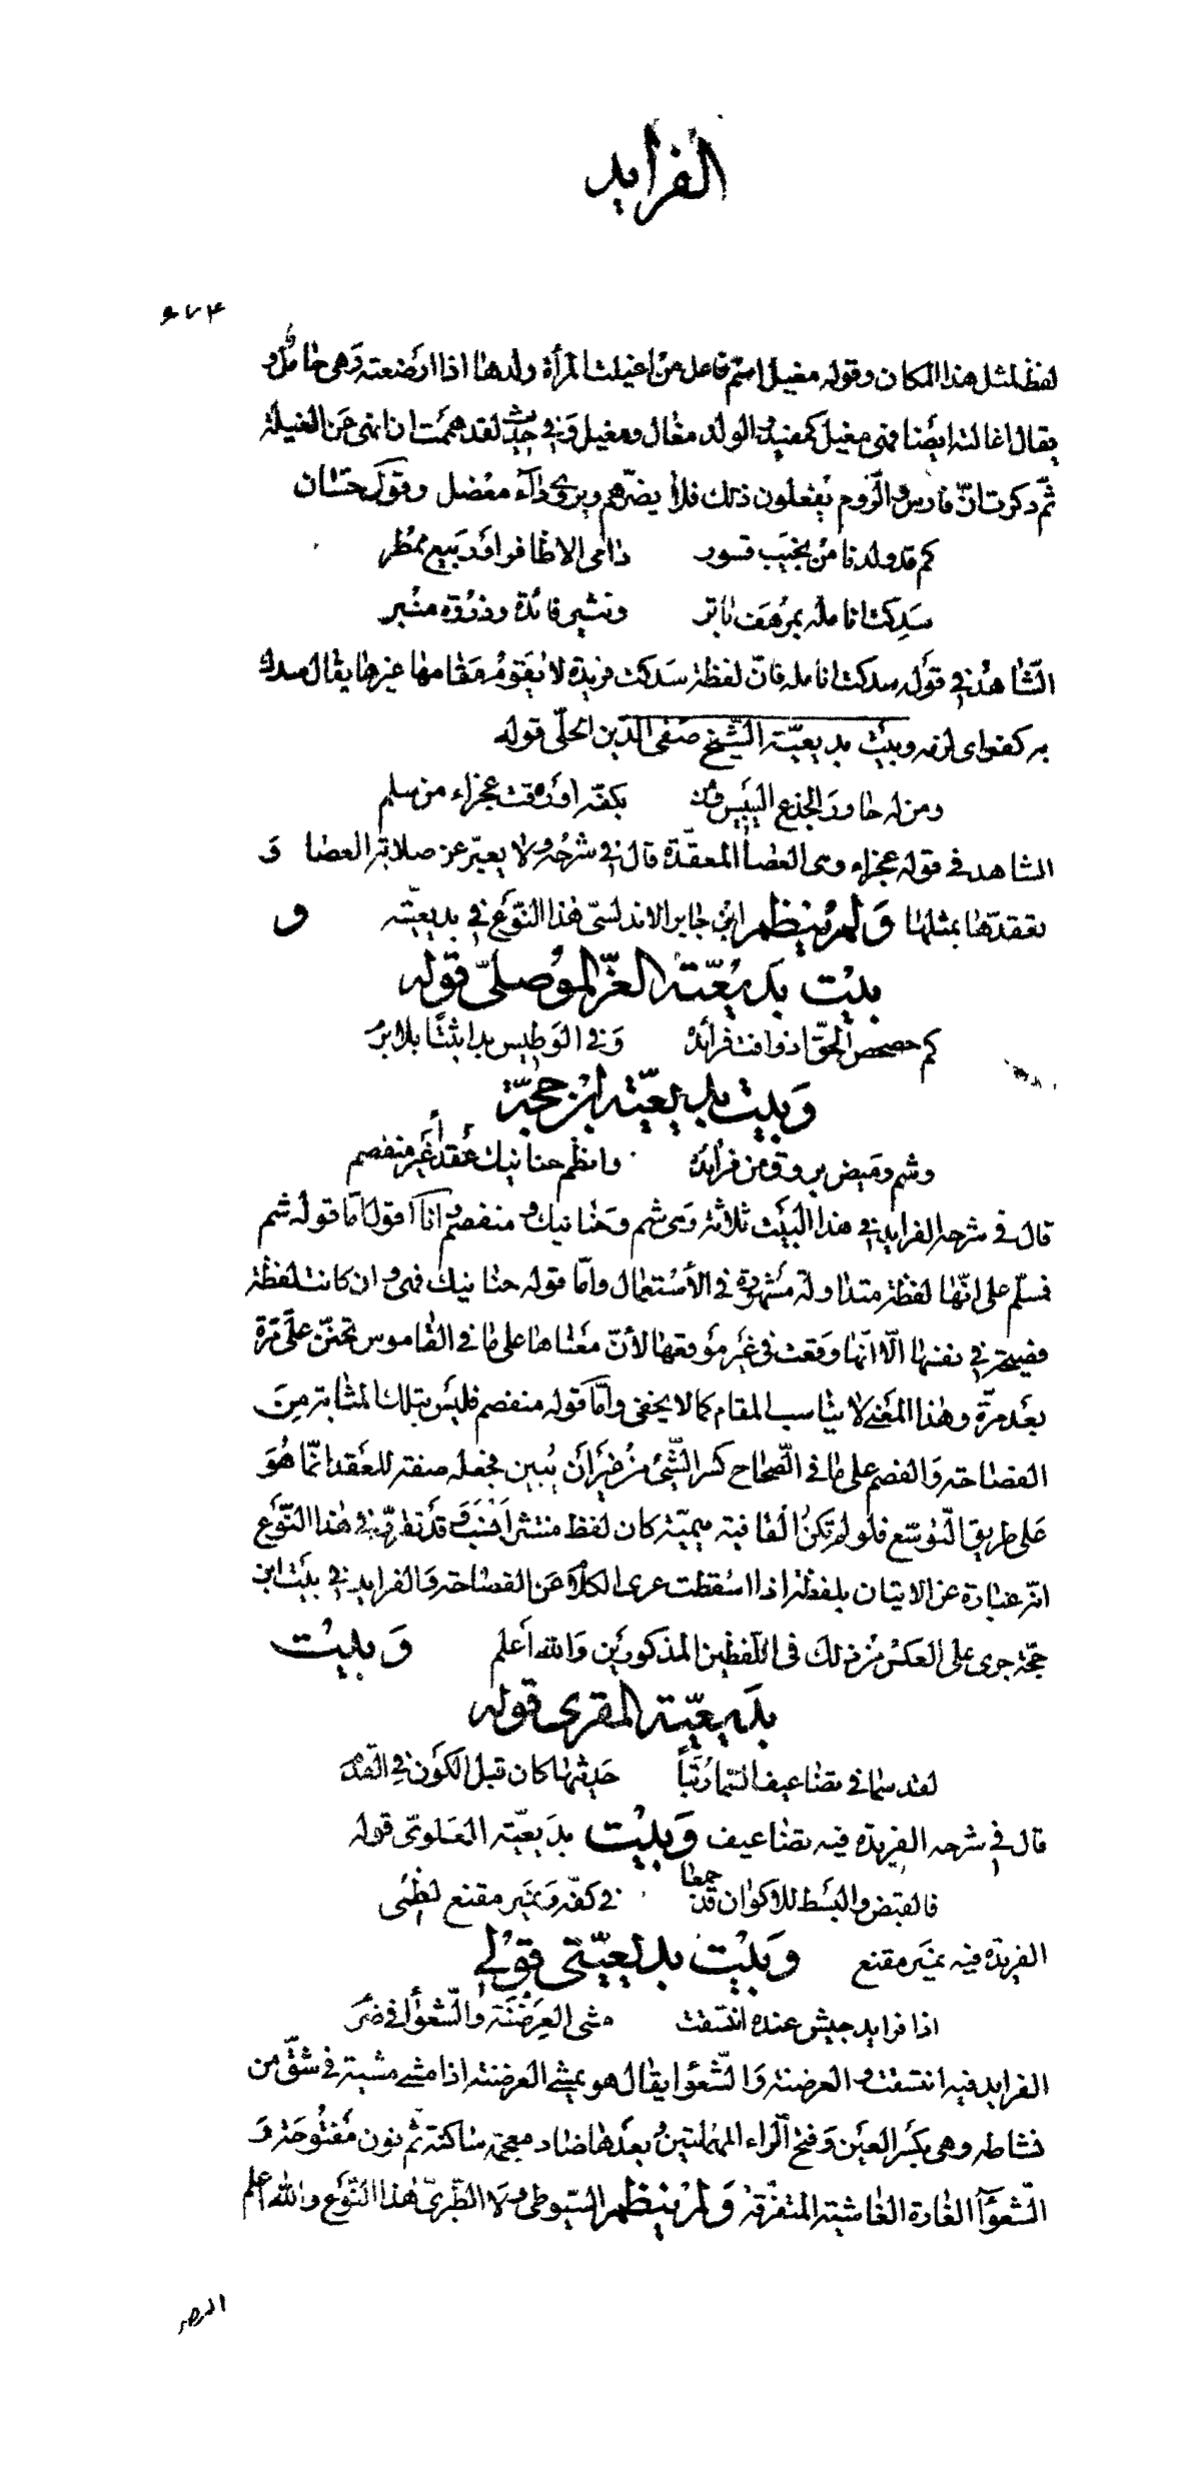 الفرايد
٦٧٤
لفظ لمثل هذا المكان وقوله مغيل اسم فاعل من اغيلت المرأة ولدها اذا ارضعته وهى حامل و
يقال اغالته ايضا فهى مغيل كمفيد والولد مغال ومغيل وفى حديث لقد هممت ان انهى عن الغيلة
ثم ذكرت ان فارس والروم يفعلون ذلك فلا يضرهم ويروى دآء معضل وقول حسان
كم قد ولدنا من نجيب قسور دامى الاظافر او ربيع ممطر
سدكت انامله بمرهف باتر وبنشر فائدة وذروة منبر
الشاهد فى قوله سدكت انامله فان لفظة سدكت فريدة لا يقوم مقامها غيرها يقال سدك
به كفرح اى لزمه وبيت بديعية الشيخ صفى الدين الحلى قوله
ومن له حاور الجذع اليبيس ومن بكفه اورقت عجراء من سلم
الشاهد فى قوله عجراء وهى العصا المعقدة قال فى شرحه ولا يعبر عن صلابة العصا و
تعقدها بمثلها ولم ينظم ابن جابر الاندلسى هذا النوع فى بديعيته و
بيت بديعية العز الموصلى قوله
كم حصحص الحق اذ وافت فرائده وفى الوطيس بدا ثبتا بلا برم
وبيت بديعية ابن حجة
وشم وميض بروق من فرائده وانظم حنانيك عقدا غير منفصم
قال فى شرحه الفرايد فى هذا البيت ثلاثة وهى شم وحنانيك ومنفصم وانا اقول اما قوله شم
فسلم على انها لفظة متداولة مشهورة فى الاستعمال واما قوله حنانيك فهى وان كانت لفظة
فصيحة فى نفسها الا انها وقعت فى غير موقعها لان معناها على ما فى القاموس تحنن على مرة
بعد مرة وهذا المعنى لا يناسب المقام كما لا يخفى واما قوله منفصم فليس بتلك المثابة من
الفصاحة والفصم على ما فى الصحاح كسر الشئ من غير ان يبين فجعله صفة للعقد انما هو
على طريق التوسع فلو لم تكن القافية ميمية كان لفظ منتثر انسب وقد تقرر فى هذا النوع
انه عبارة عن الاتيان بلفظة اذا اسقطت عرى الكلام عن الفصاحة والفرايد فى بيت ابن
حجة جرى على العكس من ذلك فى اللفظين المذكورين والله اعلم وبيت
بديعية المقرى قوله
لقد سما فى تضاعيف السما رتبا حديثها كان قبل الكون فى القدم
قال فى شرحه الفريدة فيه تضاعيف وبيت بديعية العلوى قوله
فالقبض والبسط للاكوان قد جمعا فى كفه ونمير مقنع لظمى
الفريدة فيه نمير مقنع وبيت بديعيتى قولى
اذا فرايد جيش عنده اتسقت مشى العرضنة والشعوآء فى ضرم
الفرايد فيه اتسقت والعرضنة والشعوآ يقال هو يمشى العرضنة اذا مشى مشية فى شق من
نشاطه وهى بكسر العين وفتح الراء المهملتين وبعدها ضاد معجمة ساكنة ثم نون مفتوحة و
الشعوآ الغارة الغاشية المتفرقة ولم ينظم السيوطى ولا الطبرى هذا النوع والله اعلم